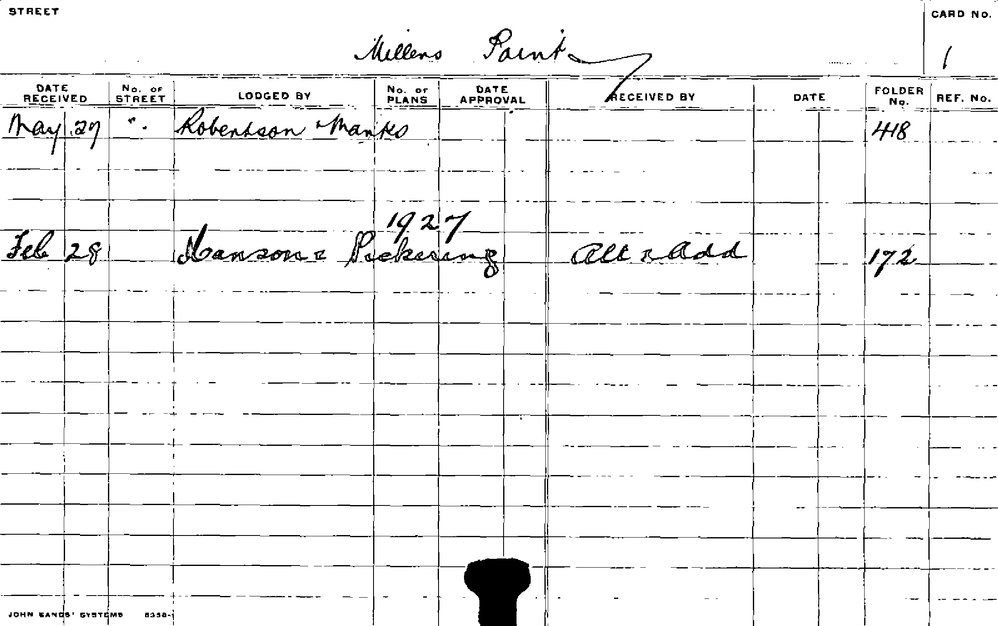 STREET
CARD No.
Millers Point
1
DATE RECEIVED No. OF STREET LODGED BY No. OF PLANS DATE APPROVAL RECEIVED BY DATE FOLDER No. REF. No.
May 27 ". Robertson & Manks 418
1927
Feb 28 Hanson & Pickering Alt & Add 172
JOHN SANDS' SYSTEMS 8358-